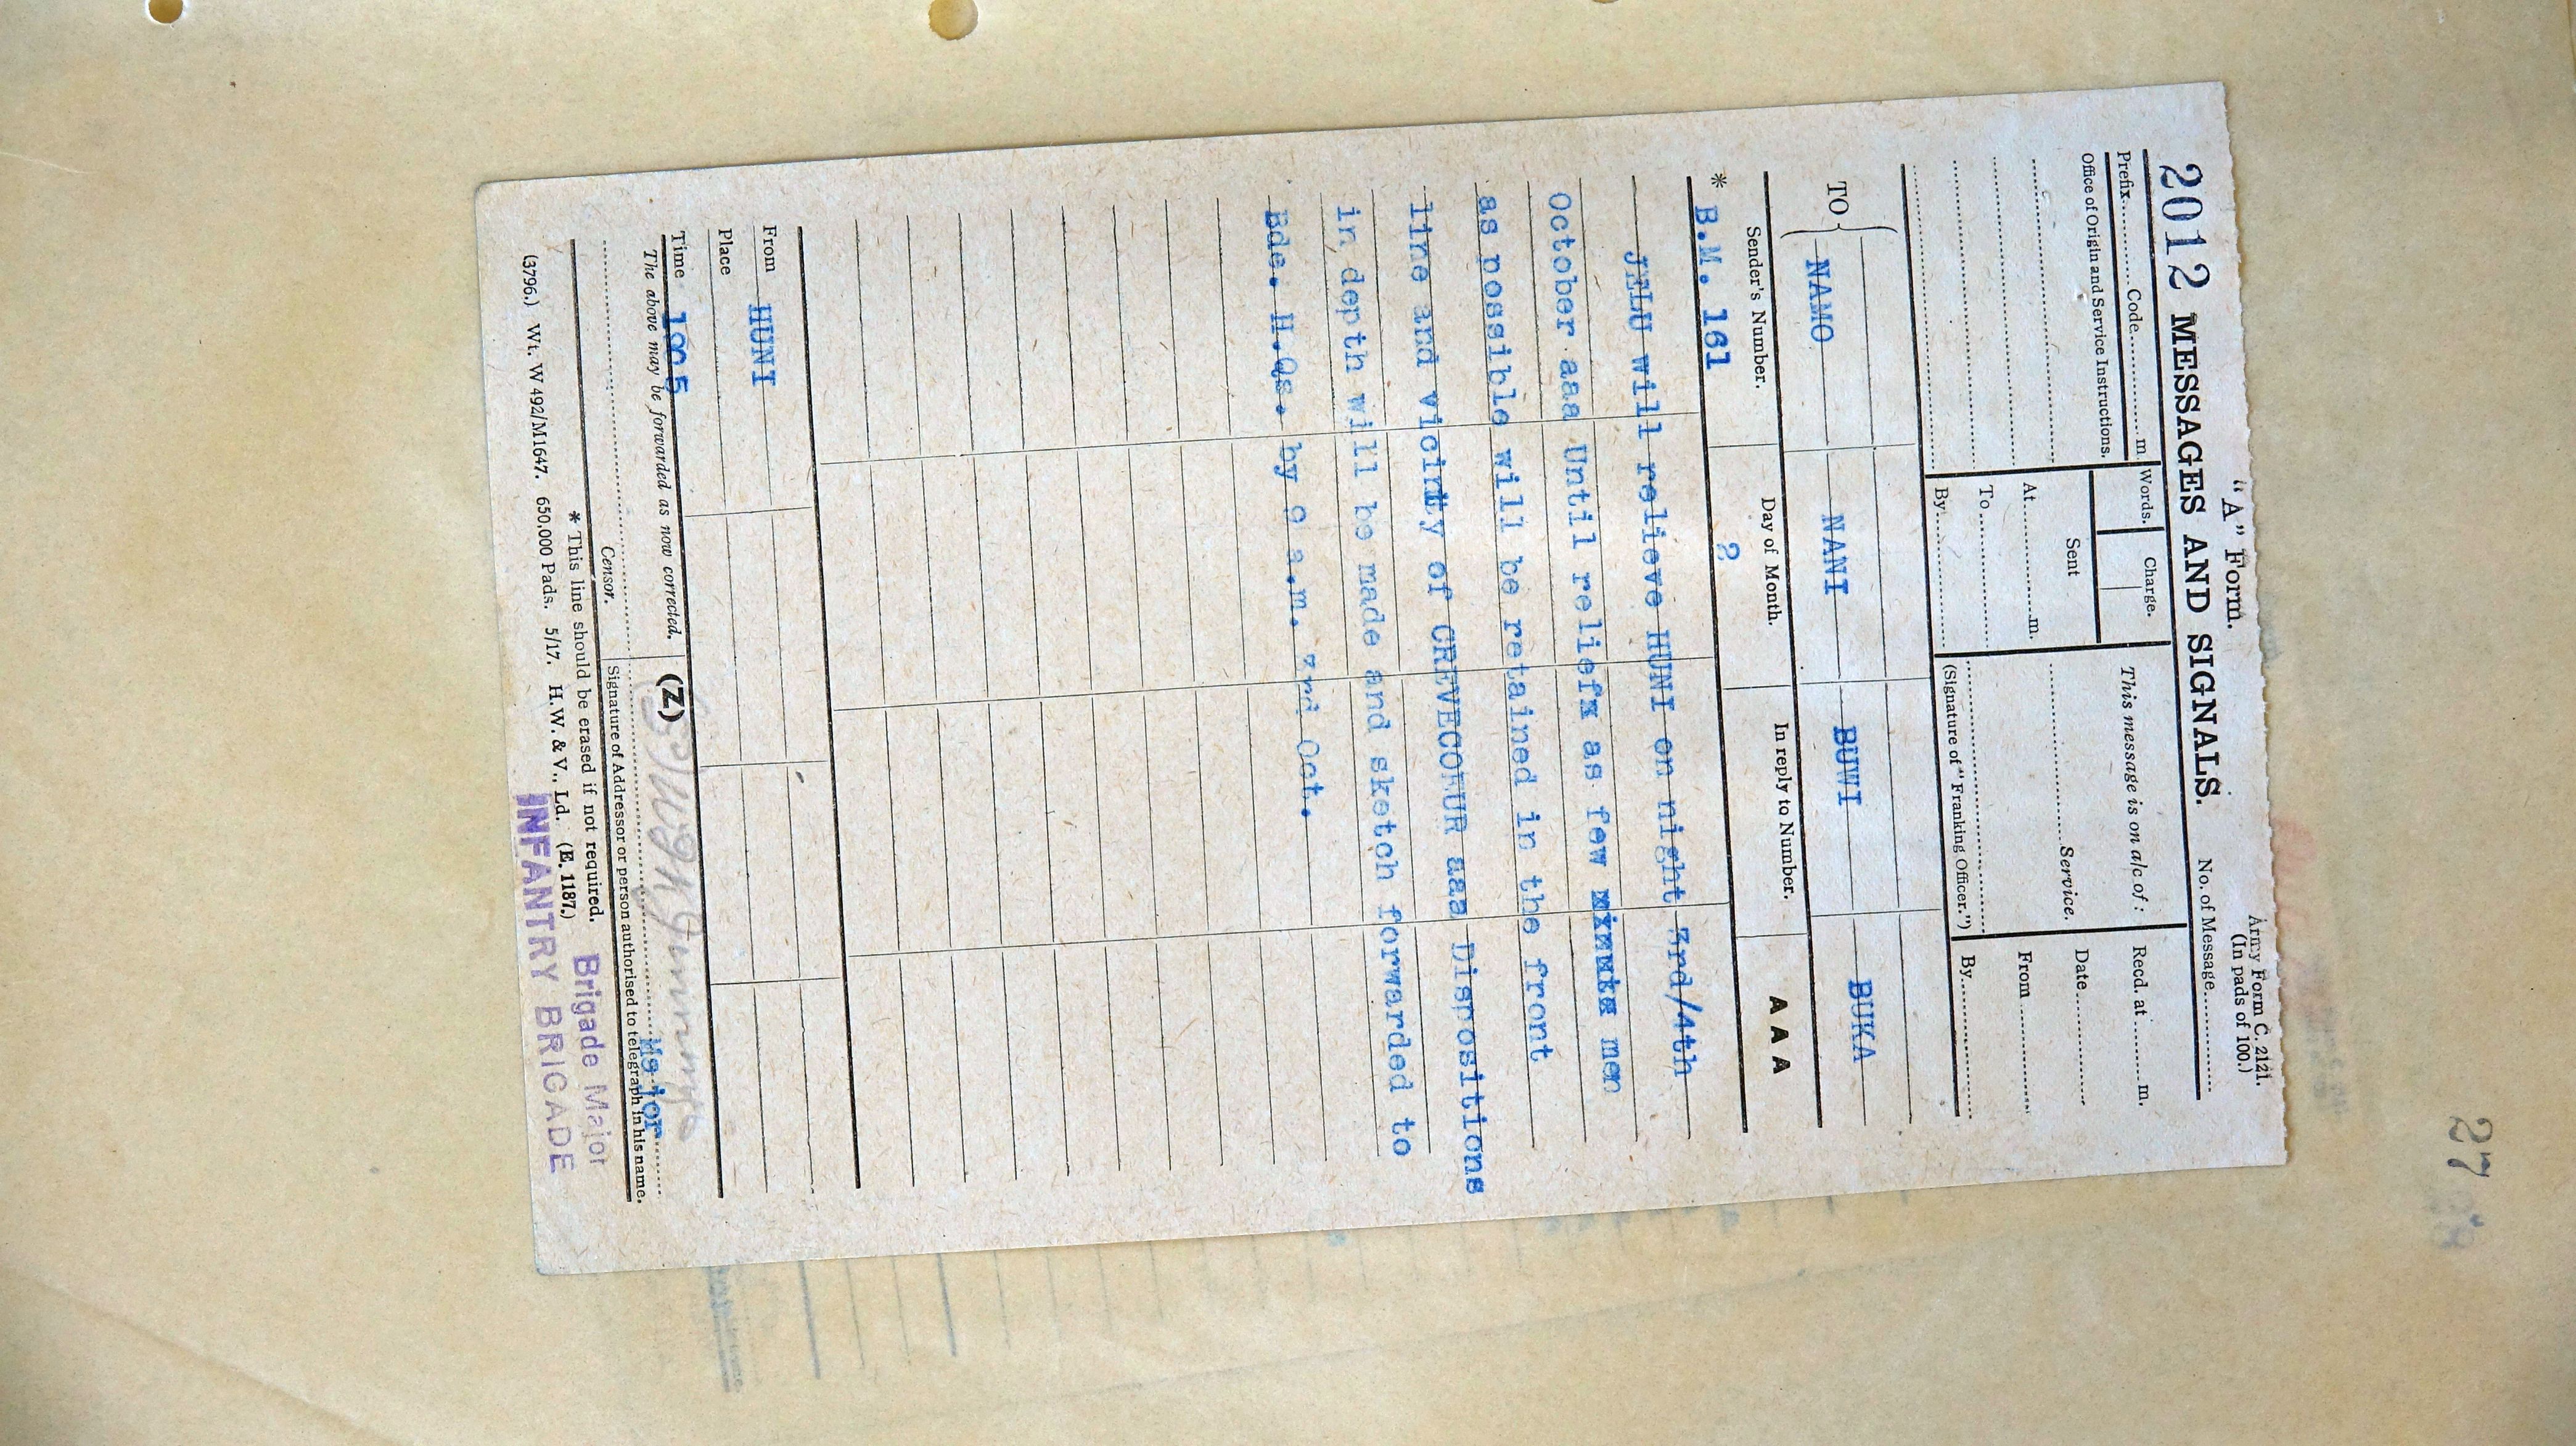 27
"A" Form.
Army Form C. 2121.
(In pads of 100.)
2012 MESSAGES AND SIGNALS.
No. of Message
Prefix Code m.
Words.
Charge.
This message is on a/c of :
Recd. at m.
Office of Origin and Service Instructions.
Sent
Service.
Date
At m.
From
To
By
(Signature of "Franking Officer.")
By
TO
NAMO NANI BUWI BUKA
Sender's Number. Day of Month. In reply to Number. A A A
* B.M. 161 2
JELU will relieve HUNI on night 3rd/4th
October aaa Until reliefx as few xinutx men
as possible will be retained in the front
line and vicinity of CREVECOEUR aaa Dispositions
in depth will be made and sketch forwarded to
Bde. H.Qs. by 9 a.m. 3rd Oct.
From HUNI
Place
Time 1905
The above may be forwarded as now corrected.
(Z)
Major
Censor.
Signature of Addressor or person authorised to telegraph in his name.
* This line should be erased if not required.
(3796.) Wt. W 492/M1647. 650,000 Pads. 5/17. H.W. & V., Ld. (E. 1187.)
Brigade Major
INFANTRY BRIGADE